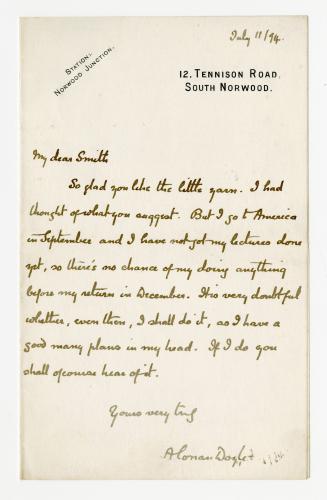 July 11/94.
STATION,
NORWOOD JUNCTION.
12, TENNISON ROAD,
SOUTH NORWOOD.
My dear Smith
So glad you like the little yarn. I had
thought of what you suggest. But I go to America
in September and I have not got my lectures done
yet, so there's no chance of my doing anything
before my return in December. It is very doubtful
whether, even then, I shall do it, as I have a
good many plans in my head. If I do you
shall of course hear of it.
Yours very truly
A Conan Doyle